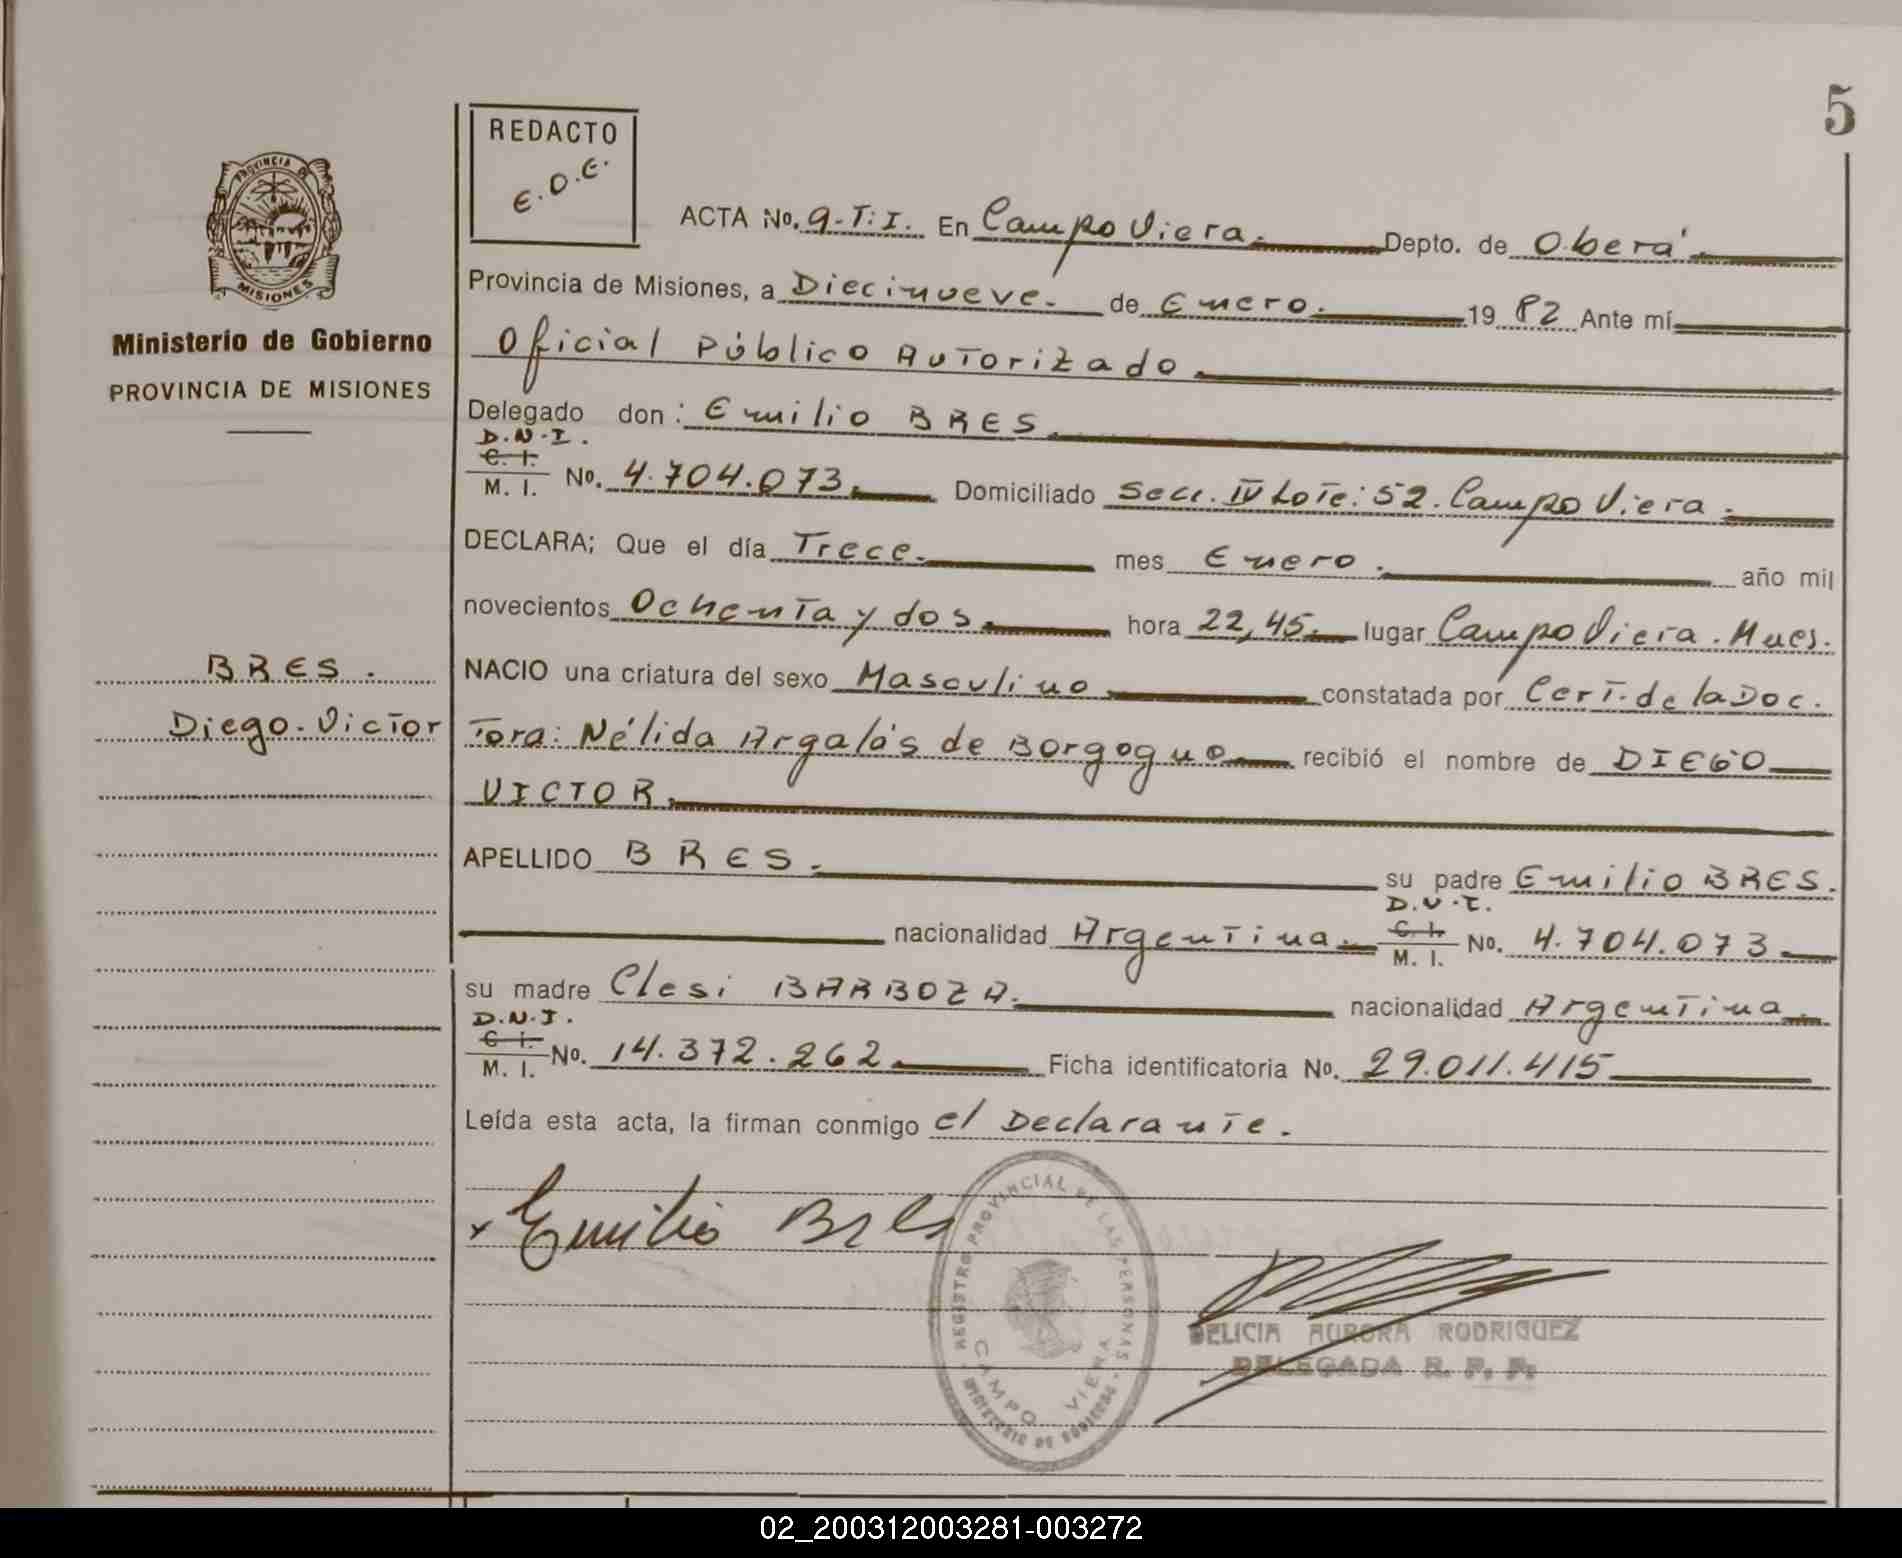 5
REDACTO
E.D.E.
PROVINCIA DE
MISIONES
Ministerio de Gobierno
PROVINCIA DE MISIONES
ACTA No. 9-T:I. En Campo Viera. Depto. de Oberá.
Provincia de Misiones, a Diecinueve. de Enero. 19 82 Ante mí
Oficial Público Autorizado
Delegado don: Emilio BRES
D.N.I.
C. I.
M. I. No. 4.704.073. Domiciliado Secc. IV Lote: 52. Campo Viera.
DECLARA; Que el día Trece. mes Enero. año mil
novecientos Ochenta y dos hora 22,45. lugar Campo Viera. Mnes.
BRES.
NACIO una criatura del sexo Masculino constatada por Cert. de la Doc.
Diego. Victor
tora: Nélida Argalás de Borgogno recibió el nombre de DIEGO
VICTOR.
APELLIDO BRES. su padre Emilio BRES.
D.N.I.
C. I.
nacionalidad Argentina. M. I. No. 4.704.073
su madre Clesi BARBOZA. nacionalidad Argentina.
D.N.I.
C. I.
M. I. No. 14.372.262 Ficha identificatoria No. 29.011.415
Leída esta acta, la firman conmigo el Declarante.
x Emilio Bres
REGISTRO PROVINCIAL DE LAS PERSONAS
CAMPO VIERA
MINISTERIO DE GOBIERNO
DELICIA AURORA RODRIGUEZ
DELEGADA R. P. P.
02_200312003281-003272